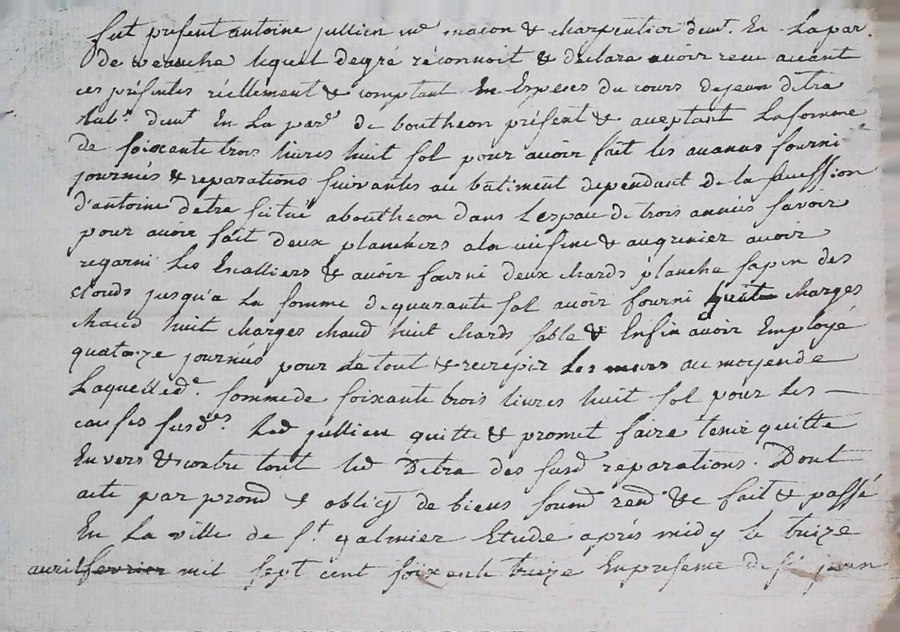 fut présent antoine jullien me macon & charpentier demt. En La par.
de veauche lequel de gré réconnoit & déclare avoir recu avant
ces présentes réellement & comptant En Especes du cours de jean détra
labr. demt En La parse. de boutheon présent & aceptant La somme
de soixante trois livres huit sol pour avoir fait les avances fourni
journées & reparations suivantes au bâtiment dependant de la succession
d'antoine detra situé a boutheon dans L'espace de trois années savoir
pour avoir fait deux planchers a la cuisine & au grenier avoir
regarni Les Escalliers & avoir fourni deux chards planche sapin des
clouds jusqu'a La somme de quarante sol avoir fourni charges
chaud huit charges chaud huit chards sable & Enfin avoir Employé
quatorze journées pour Le tout & recrépir Les murs au moyen de
Laquelle de. somme de soixante trois livres huit sol pour Les
causes susdes. Led jullien quitte & promet faire tenir quitte
Envers & contre tout led Détra des susd reparations. Dont
acte par promd & obligo de biens soumd rend &c fait & passé
En La ville de st. galmier Etude après midy le treize
avril fevrier mil sept cent soixante treize En presence de sr jean